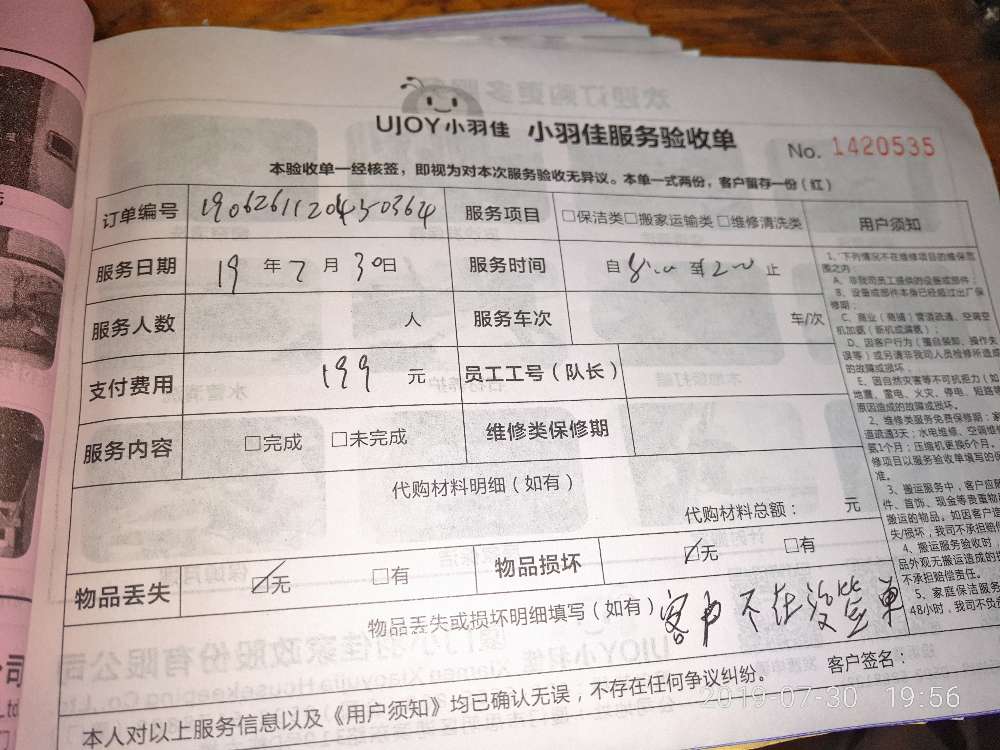 UJOY小羽佳 小羽佳服务验收单 No. 1420535
本验收单一经核签，即视为对本次服务验收无异议。本单一式两份，客户留存一份（红）
订单编号 服务项目 □保洁类□搬家运输类 □维修清洗类 用户须知
服务日期 19 年 7 月 30日 服务时间 自 至 止
服务人数 人 服务车次 车/次
支付费用 199 元 员工工号（队长）
服务内容 □完成 □未完成 维修类保修期
代购材料明细（如有）
代购材料总额： 元
物品丢失 ☑无 □有 物品损坏 ☑无 □有
物品丢失或损坏明细填写（如有）客户不在没签单
客户签名：
本人对以上服务信息以及《用户须知》均已确认无误，不存在任何争议纠纷。
1、下列情况不在维修项目的维保范
围之内：
A、非我司员工提供的设备或部件；
B、设备或部件本身已经超过出厂保
修期；
C、商业（商铺）管道疏通、空调空
机加氨（新机或漏氨）；
D、因客户行为（擅自装卸、操作失
误等）或另请非我司人员检修所造成
的故障或损坏。
E、因自然灾害等不可抗拒力（如
地震、雷电、火灾、停电、短路等
原因造成的故障或损坏。
2、维修类服务免费保修期：
道疏通3天；水电维修、空调维
氨1个月；压缩机更换6个月。
修项目以服务验收单填写的保
准。
3、搬运服务中，客户应
件、首饰、现金等贵重物
搬运的物品。如因客户
失/损坏，我司不承担赔
4、搬运服务验收时，
品外观无搬运造成的
不承担赔偿责任。
5、家庭保洁服务
48小时，我司不负
2019-07-30 19:56